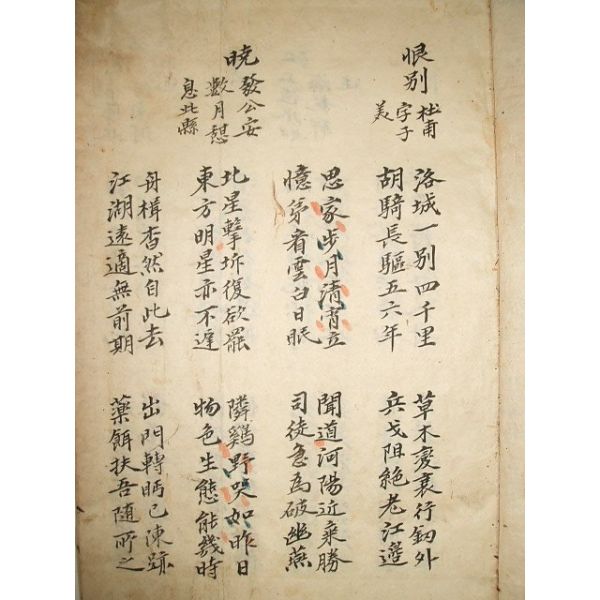 恨別
杜甫
字子
美
洛城一別四千里
胡騎長驅五六年
草木變衰行釼外
兵戈阻絕老江邊
思家步月清宵立
憶苐看雲白日眠
聞道河陽近乘勝
司徒急為破幽燕
曉發公安
數月憩
息此縣
北星擊柝復欲罷
東方明星亦不遲
隣鷄野哭如昨日
物色生態能幾時
舟楫杳然自此去
江湖遠適無前期
出門轉眄已陳跡
藥餌扶吾隨所之